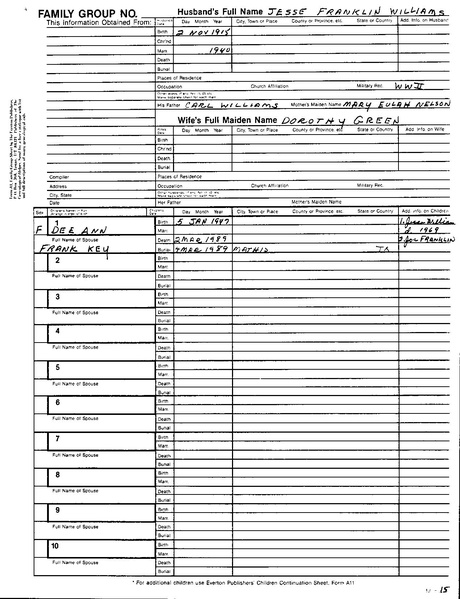 FAMILY GROUP NO.
Husband's Full Name JESSE FRANKLIN WILLIAMS
This Information Obtained From:
Day Month Year City, Town or Place County or Province, etc. State or Country Add. Info. on Husband
Birth 2 NOV 1915
Chr'nd
Marr. 1940
Death
Burial
Places of Residence
Occupation Church Affiliation Military Rec. WW II
His Father CARL WILLIAMS Mother's Maiden Name MARY EULAH NELSON
Wife's Full Maiden Name DOROTHY GREEN
Day Month Year City, Town or Place County or Province, etc. State or Country Add. Info. on Wife
Birth
Chr'nd
Death
Burial
Compiler Places of Residence
Address Occupation Church Affiliation Military Rec.
City, State
Date Her Father Mother's Maiden Name
Sex Day Month Year City, Town or Place County or Province, etc. State or Country Add. Info. on Children
1 Birth 5 JAN 1947
F DEE ANN Marr. 1969
Full Name of Spouse Death 2 MAR 1989 FRANKLIN
FRANK KEY Burial 4 MAR 1989 MATHIS
2 Birth
Marr.
Full Name of Spouse Death
Burial
3 Birth
Marr.
Full Name of Spouse Death
Burial
4 Birth
Marr.
Full Name of Spouse Death
Burial
5 Birth
Marr.
Full Name of Spouse Death
Burial
6 Birth
Marr.
Full Name of Spouse Death
Burial
7 Birth
Marr.
Full Name of Spouse Death
Burial
8 Birth
Marr.
Full Name of Spouse Death
Burial
9 Birth
Marr.
Full Name of Spouse Death
Burial
10 Birth
Marr.
Full Name of Spouse Death
Burial
* For additional children use Everton Publishers' Children Continuation Sheet, Form A11
15